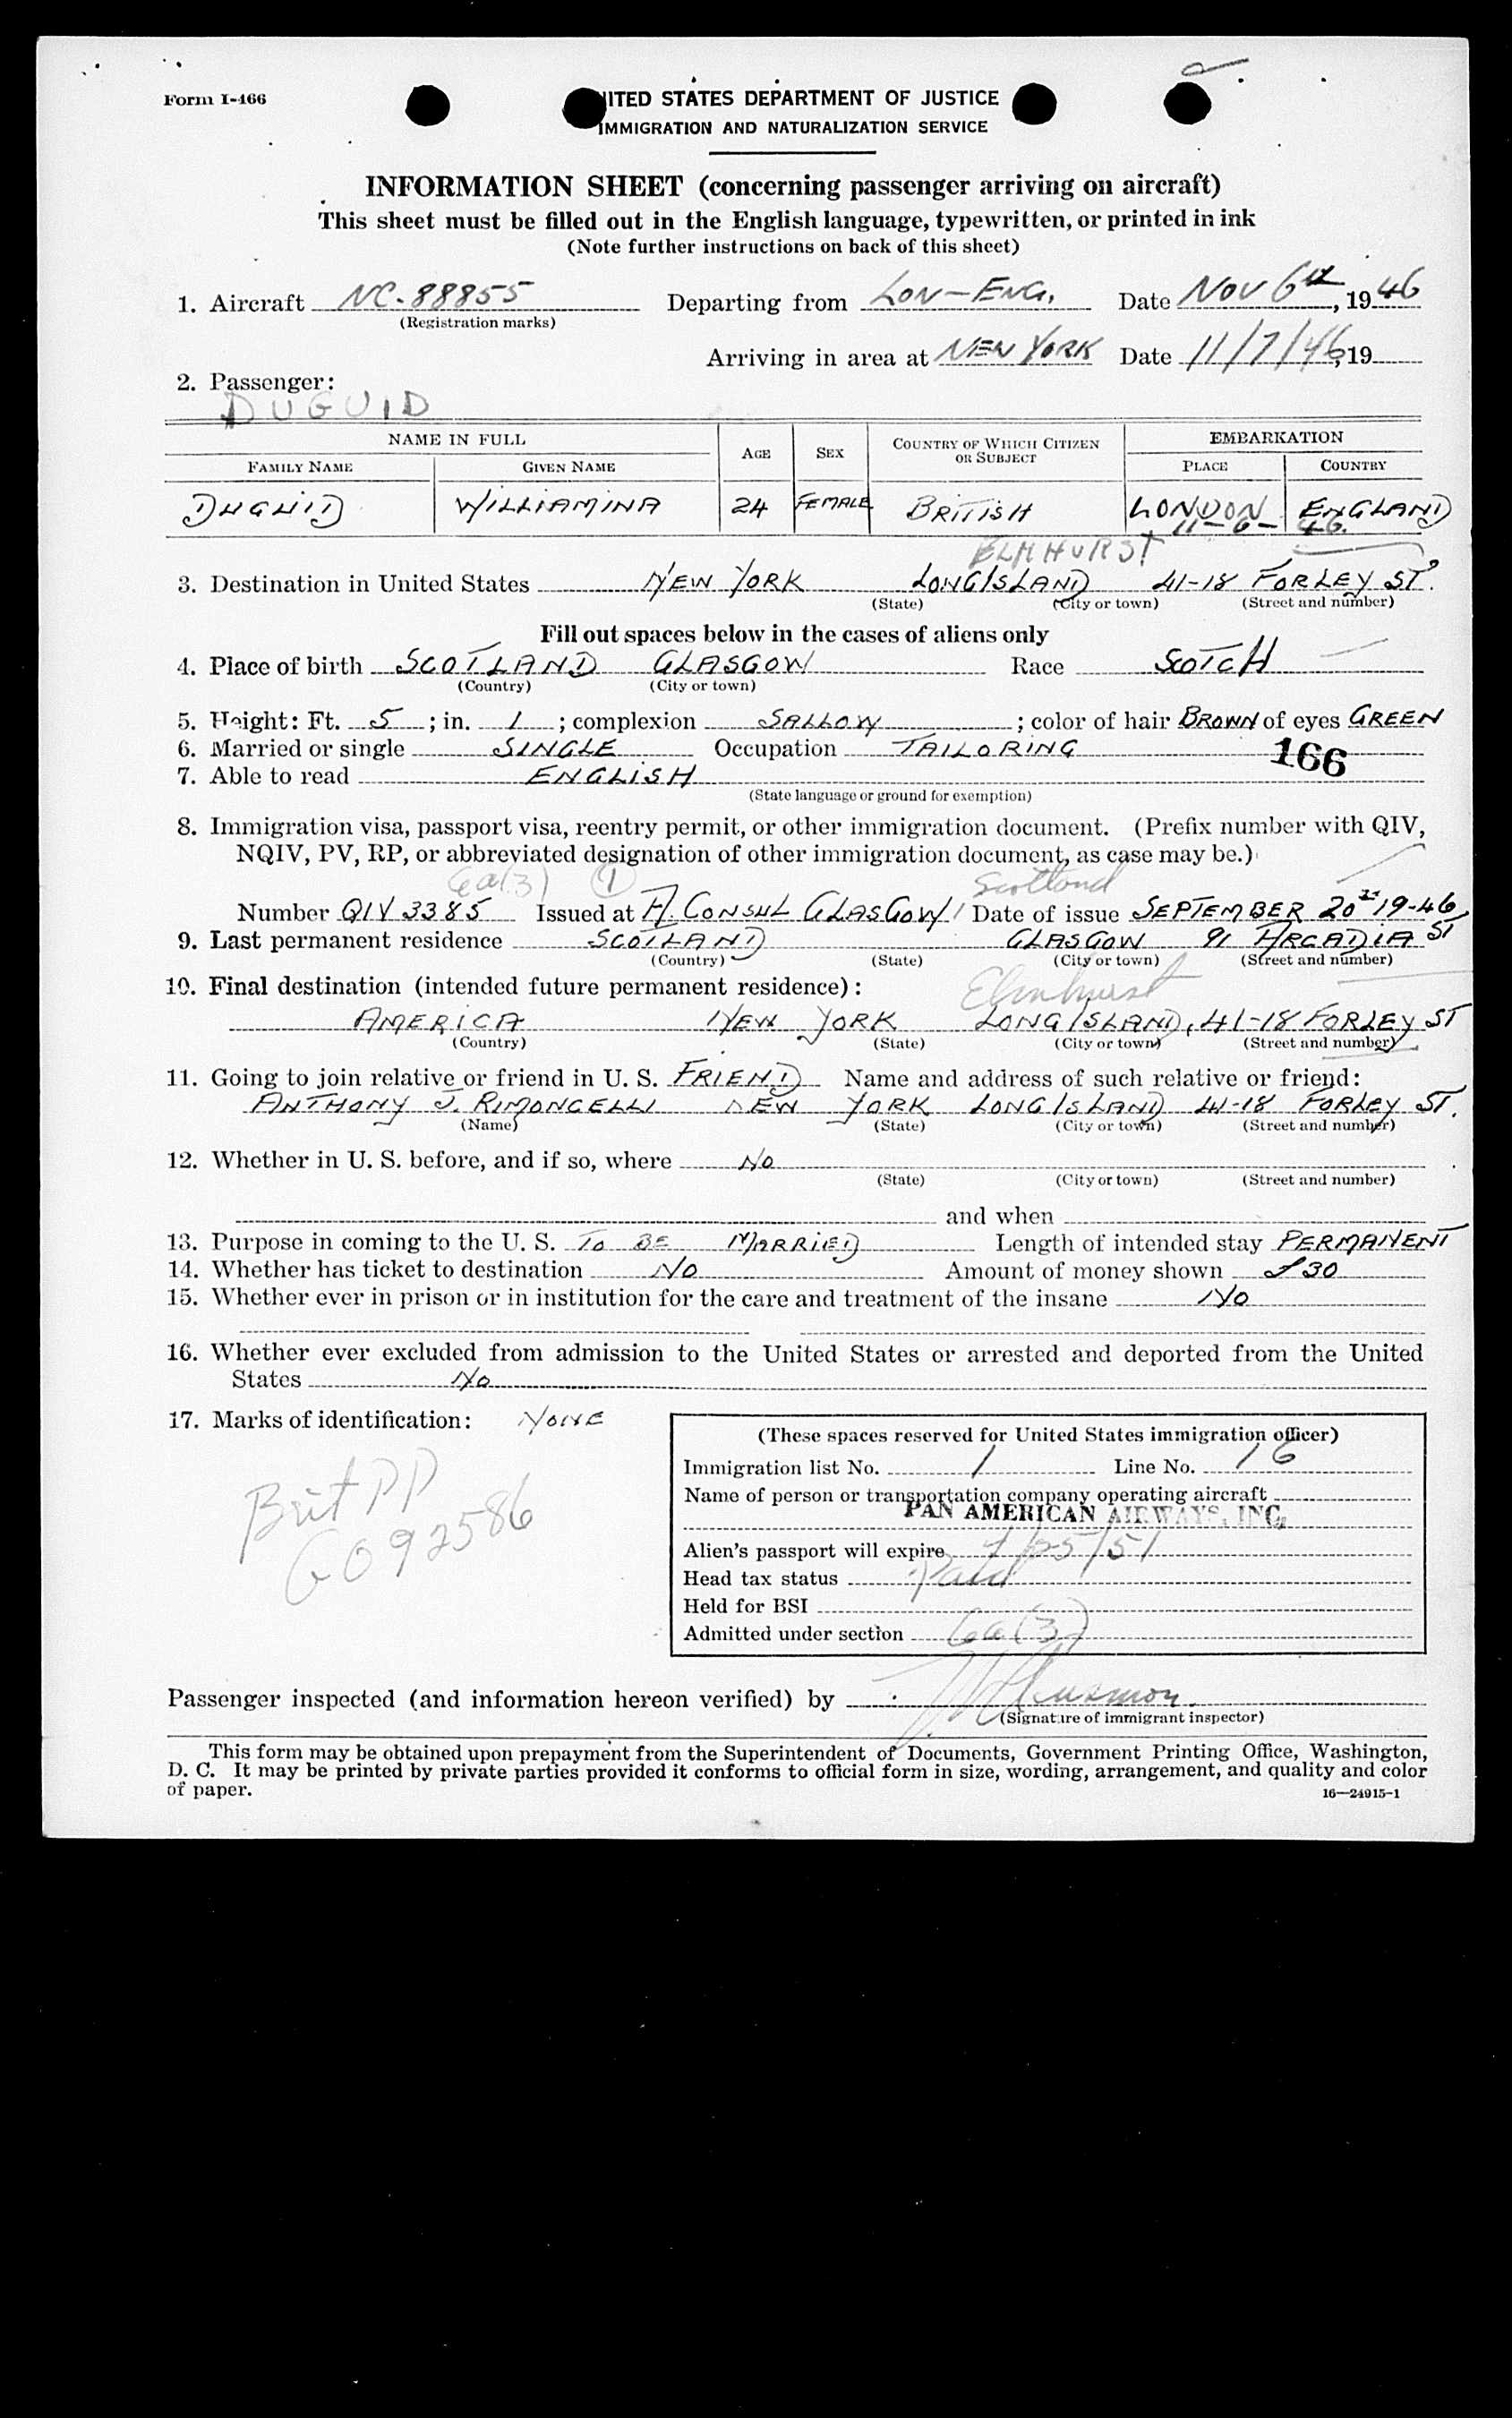 Form I-466
UNITED STATES DEPARTMENT OF JUSTICE
IMMIGRATION AND NATURALIZATION SERVICE
INFORMATION SHEET (concerning passenger arriving on aircraft)
This sheet must be filled out in the English language, typewritten, or printed in ink
(Note further instructions on back of this sheet)
1. Aircraft NC-88855 Departing from LON-ENG. Date NOV 6th, 1946
(Registration marks)
Arriving in area at NEW YORK Date 11/7/46, 19
2. Passenger:
DUGUID
NAME IN FULL AGE SEX COUNTRY OF WHICH CITIZEN OR SUBJECT EMBARKATION
FAMILY NAME GIVEN NAME PLACE COUNTRY
DUGUID WILLIAMINA 24 FEMALE BRITISH LONDON ENGLAND
11-6-46.
ELMHURST
3. Destination in United States NEW YORK LONG ISLAND 41-18 FORLEY ST.
(State) (City or town) (Street and number)
Fill out spaces below in the cases of aliens only
4. Place of birth SCOTLAND GLASGOW Race SCOTCH
(Country) (City or town)
5. Height: Ft. 5; in. 1; complexion SALLOW; color of hair BROWN of eyes GREEN
6. Married or single SINGLE Occupation TAILORING
166
7. Able to read ENGLISH
(State language or ground for exemption)
8. Immigration visa, passport visa, reentry permit, or other immigration document. (Prefix number with QIV,
NQIV, PV, RP, or abbreviated designation of other immigration document, as case may be.)
6a(3) 1 Scotland
Number QIV 3385 Issued at A. CONSUL GLASGOW Date of issue SEPTEMBER 20th 19-46
9. Last permanent residence SCOTLAND GLASGOW 91 ARCADIA ST
(Country) (State) (City or town) (Street and number)
10. Final destination (intended future permanent residence):
Elmhurst
AMERICA NEW YORK LONG ISLAND, 41-18 FORLEY ST
(Country) (State) (City or town) (Street and number)
11. Going to join relative or friend in U. S. FRIEND Name and address of such relative or friend:
ANTHONY J. RIMONCELLI NEW YORK LONG ISLAND 41-18 FORLEY ST.
(Name) (State) (City or town) (Street and number)
12. Whether in U. S. before, and if so, where NO
(State) (City or town) (Street and number)
and when
13. Purpose in coming to the U. S. TO BE MARRIED Length of intended stay PERMANENT
14. Whether has ticket to destination NO Amount of money shown £30
15. Whether ever in prison or in institution for the care and treatment of the insane NO
16. Whether ever excluded from admission to the United States or arrested and deported from the United
States NO
17. Marks of identification: NONE
Brit PP
G092586
(These spaces reserved for United States immigration officer)
Immigration list No. 1 Line No. 16
Name of person or transportation company operating aircraft
PAN AMERICAN AIRWAYS, INC.
Alien's passport will expire 7/25/51
Head tax status Paid
Held for BSI
Admitted under section 6a(3)
Passenger inspected (and information hereon verified) by
(Signature of immigrant inspector)
This form may be obtained upon prepayment from the Superintendent of Documents, Government Printing Office, Washington,
D. C. It may be printed by private parties provided it conforms to official form in size, wording, arrangement, and quality and color
of paper.
16—24915-1